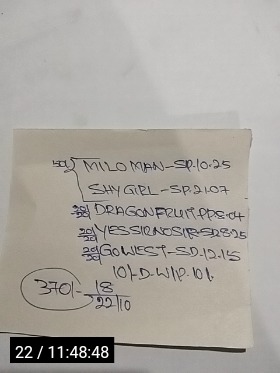 50/ MILO MAN-SP.10.25
SHY GIRL-SP.2.07
20/20 DRAGONFRUIT.PP.8.04
20/20 YESSIRNOSIR-SD.8.25
20/20 GOWEST-SD.12.15
10/-D.W/P.10/.
370/- 18
22/10
22 / 11:48:48